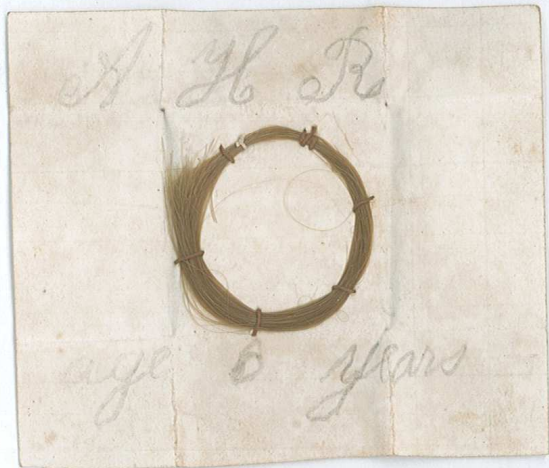 A H R
age 6 years